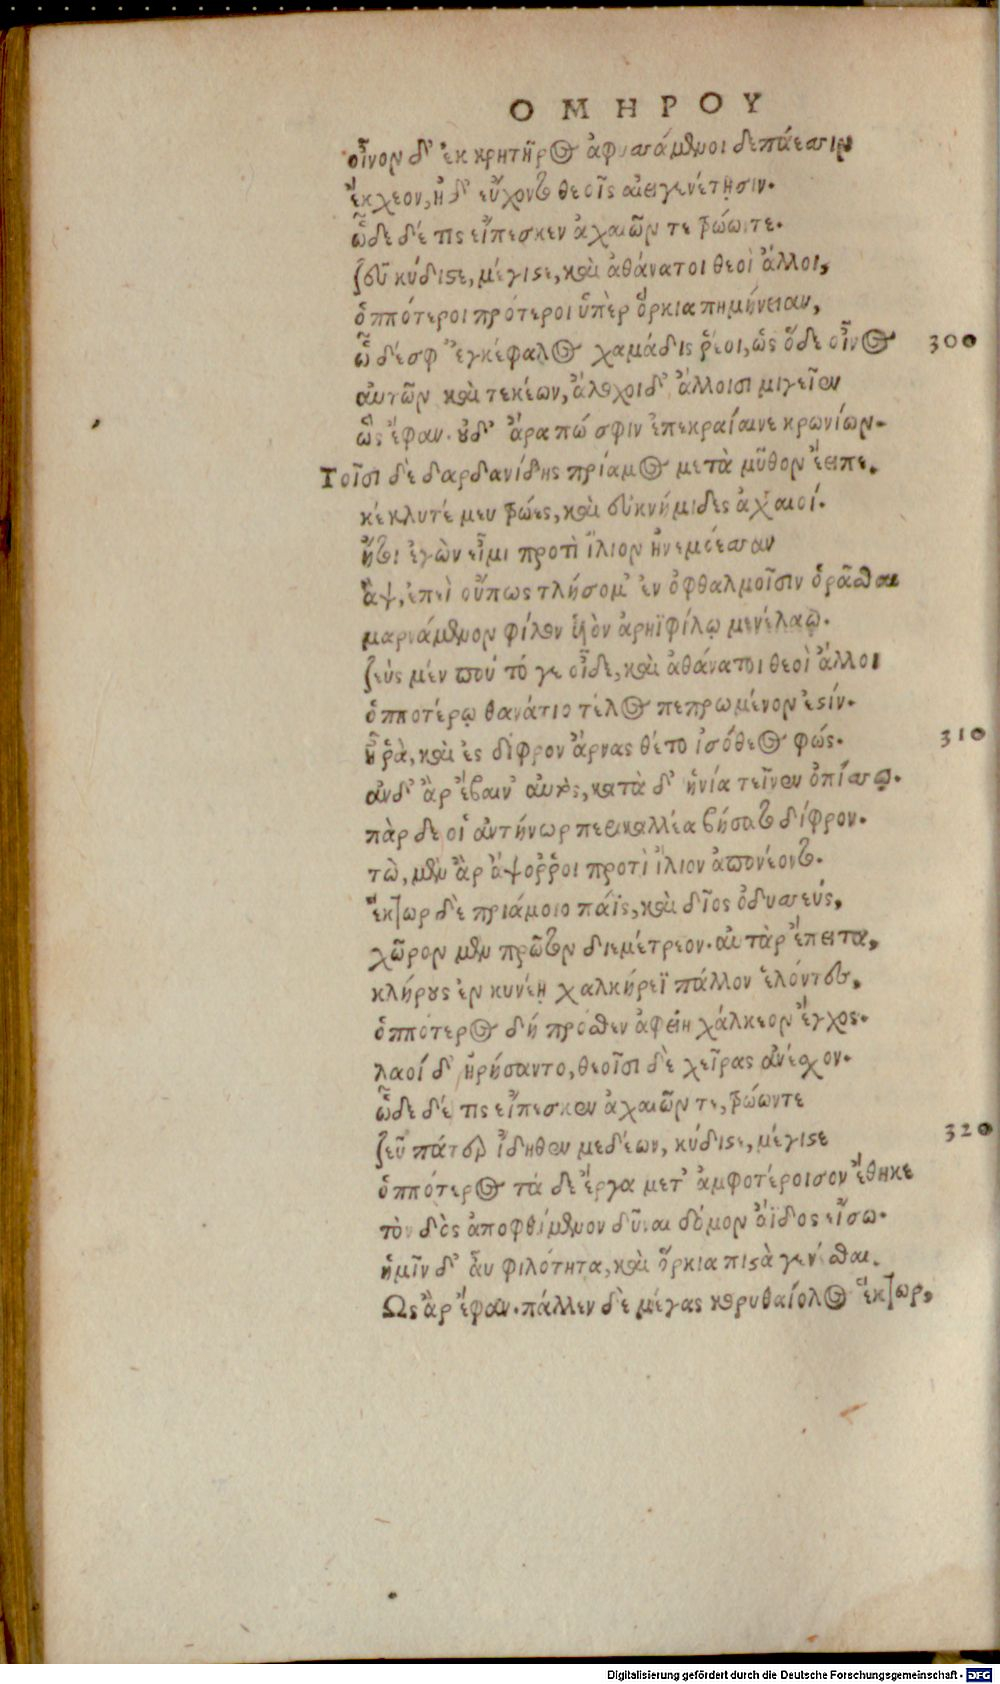 ΟΜΗΡΟΥ
οἶνον δ' ἐκ κρητῆρος ἀφυσσάμενοι δεπάεσσιν
ἔκχεον, ἠδ' εὔχοντο θεοῖς αἰειγενέτῃσιν.
ὧδε δέ τις εἴπεσκεν ἀχαιῶν τε τρώων τε.
ζεῦ κύδιστε, μέγιστε, καὶ ἀθάνατοι θεοὶ ἄλλοι,
ὁππότεροι πρότεροι ὑπὲρ ὅρκια πημήνειαν,
ὧδέ σφ' ἐγκέφαλος χαμάδις ῥέοι, ὡς ὅδε οἶνος 300
αὐτῶν καὶ τεκέων, ἄλοχοι δ' ἄλλοισι μιγεῖεν
ὣς ἔφαν. οὐδ' ἄρα πώ σφιν ἐπεκραίαινε κρονίων.
Τοῖσι δὲ δαρδανίδης πρίαμος μετὰ μῦθον ἔειπε.
κέκλυτέ μευ τρῶες, καὶ εὐκνήμιδες ἀχαιοί.
ἤτοι ἐγὼν εἶμι προτὶ ἴλιον ἠνεμόεσσαν
ἂψ, ἐπεὶ οὔπως τλήσομ' ἐν ὀφθαλμοῖσιν ὁρᾶσθαι
μαρνάμενον φίλον υἱὸν ἀρηϊφίλῳ μενέλαῳ.
ζεὺς μέν που τό γε οἶδε, καὶ ἀθάνατοι θεοὶ ἄλλοι
ὁπποτέρῳ θανάτοιο τέλος πεπρωμένον ἐστίν.
ἦ ῥὰ, καὶ ἐς δίφρον ἄρνας θέτο ἰσόθεος φώς. 310
ἂν δ' ἂρ ἔβαιν' αὐτὸς, κατὰ δ' ἡνία τεῖνεν ὀπίσσω.
πὰρ δέ οἱ ἀντήνωρ περικαλλέα βήσατο δίφρον.
τὼ, μὲν ἂρ ἄψορροι προτὶ ἴλιον ἀπονέοντο.
ἕκτωρ δὲ πριάμοιο πάϊς, καὶ δῖος ὀδυσσεύς,
χῶρον μὲν πρῶτον διεμέτρεον. αὐτὰρ ἔπειτα,
κλήρους ἐν κυνέῃ χαλκήρεϊ πάλλον ἑλόντες,
ὁππότερος δή πρόσθεν ἀφείη χάλκεον ἔγχος.
λαοί δ' ἠρήσαντο, θεοῖσι δὲ χεῖρας ἀνέσχον.
ὧδε δέ τις εἴπεσκεν ἀχαιῶν τε, τρώων τε
ζεῦ πάτερ ἴδηθεν μεδέων, κύδιστε, μέγιστε 320
ὁππότερος τά δε ἔργα μετ' ἀμφοτέροισον ἔθηκε
τὸν δὸς ἀποφθίμενον δῦναι δόμον ἄϊδος εἴσω.
ἡμῖν δ' αὖ φιλότητα, καὶ ὅρκια πιστὰ γενέσθαι.
Ως ἂρ ἔφαν. πάλλεν δὲ μέγας κορυθαίολος ἕκτωρ,
Digitalisierung gefördert durch die Deutsche Forschungsgemeinschaft - DFG